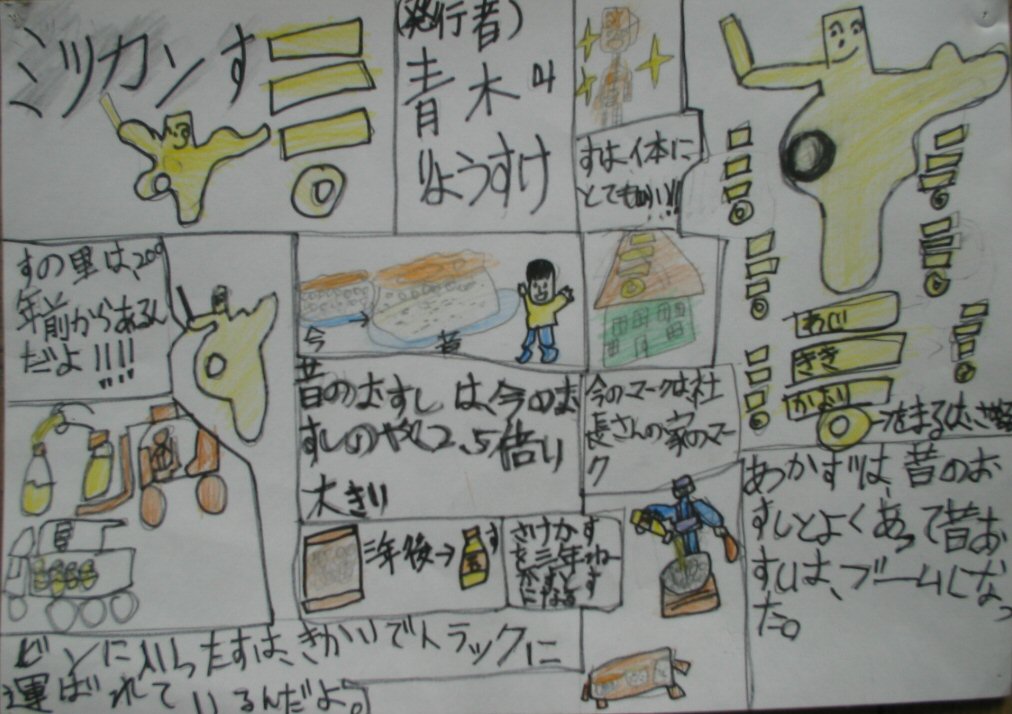 ミツカンす
(発行者)
青木
りょうすけ
すは、イ本に
とてもいい!!
すの里は、200
年前からあるん
だよ!!!!
今→昔
昔のおすしは、今のお
すしのやく2.5倍り
大きい
今のマークは社
長さんの家のマー
ク
あじ
きき
かおり
をまるは、
三年後→す
さけかす
を三年ね
かすとす
になる
あかずは、昔のお
すしとよくあって昔お
すしは、ブームになっ
た。
ビンに入ったすは、きかいでトラックに
運ばれているんだよ。